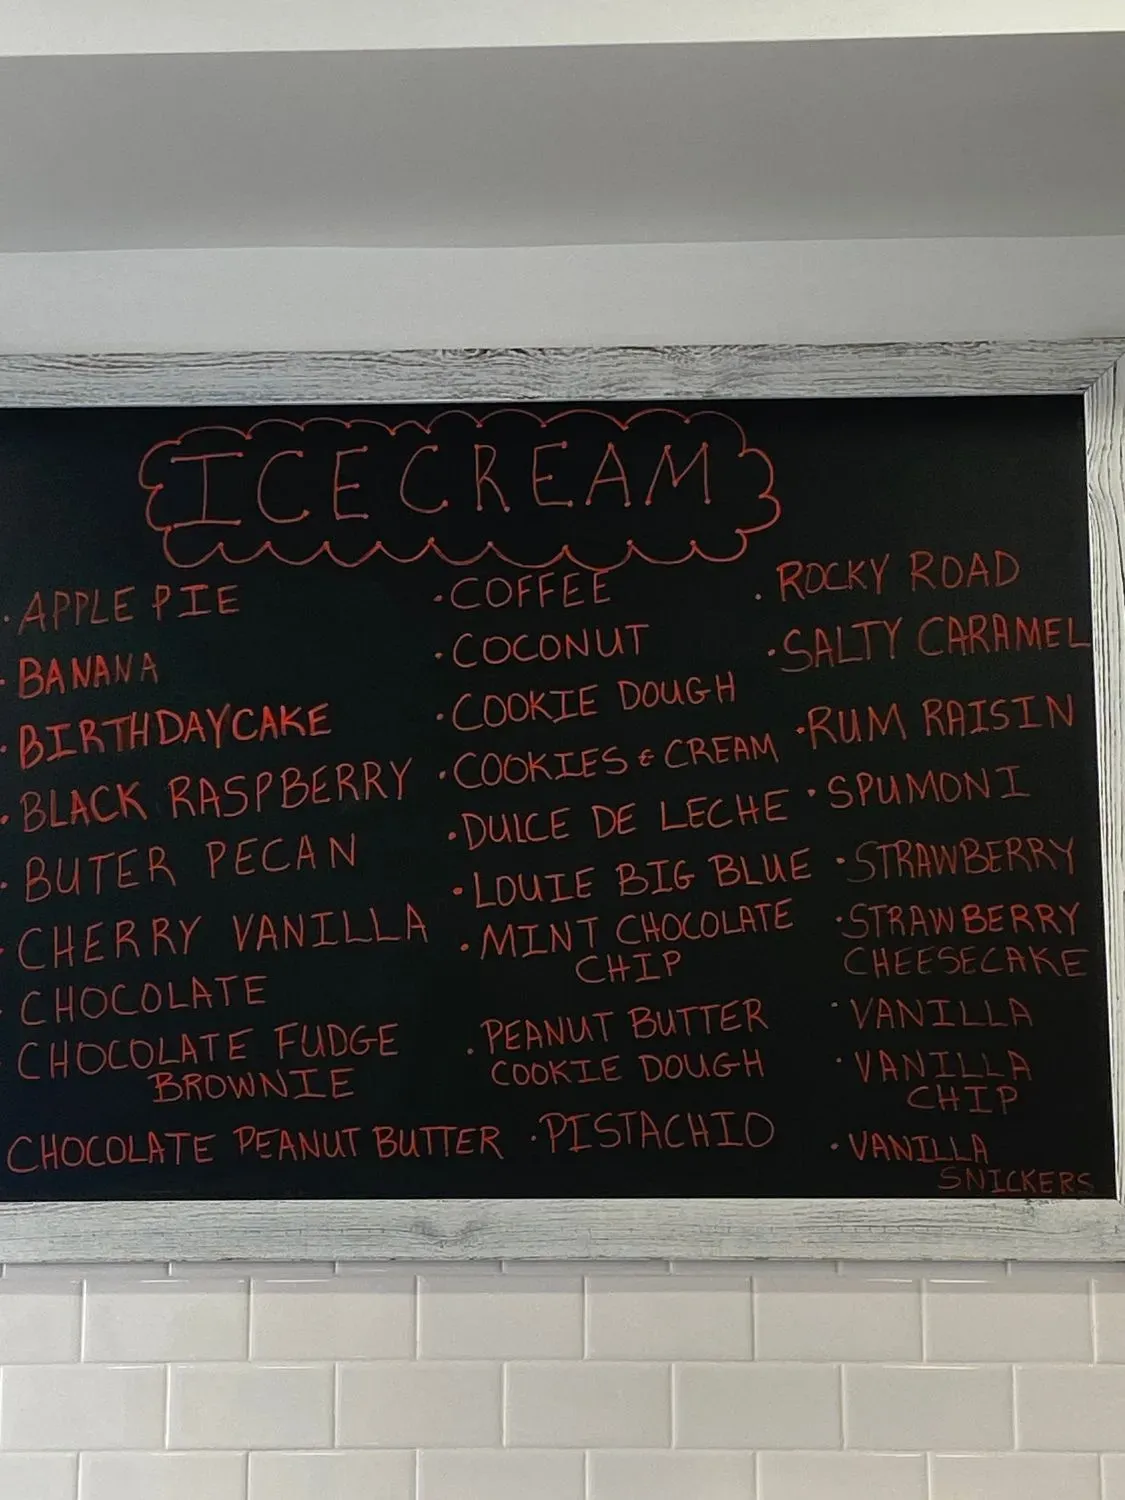 ICE CREAM
· APPLE PIE
· BANANA
· BIRTHDAY CAKE
· BLACK RASPBERRY
· BUTER PECAN
· CHERRY VANILLA
· CHOCOLATE
· CHOCOLATE FUDGE
BROWNIE
CHOCOLATE PEANUT BUTTER
· COFFEE
· COCONUT
· COOKIE DOUGH
· COOKIES & CREAM
· DULCE DE LECHE
· LOUIE BIG BLUE
· MINT CHOCOLATE
CHIP
· PEANUT BUTTER
COOKIE DOUGH
· PISTACHIO
· ROCKY ROAD
· SALTY CARAMEL
· RUM RAISIN
· SPUMONI
· STRAWBERRY
· STRAWBERRY
CHEESECAKE
· VANILLA
· VANILLA
CHIP
· VANILLA
SNICKERS